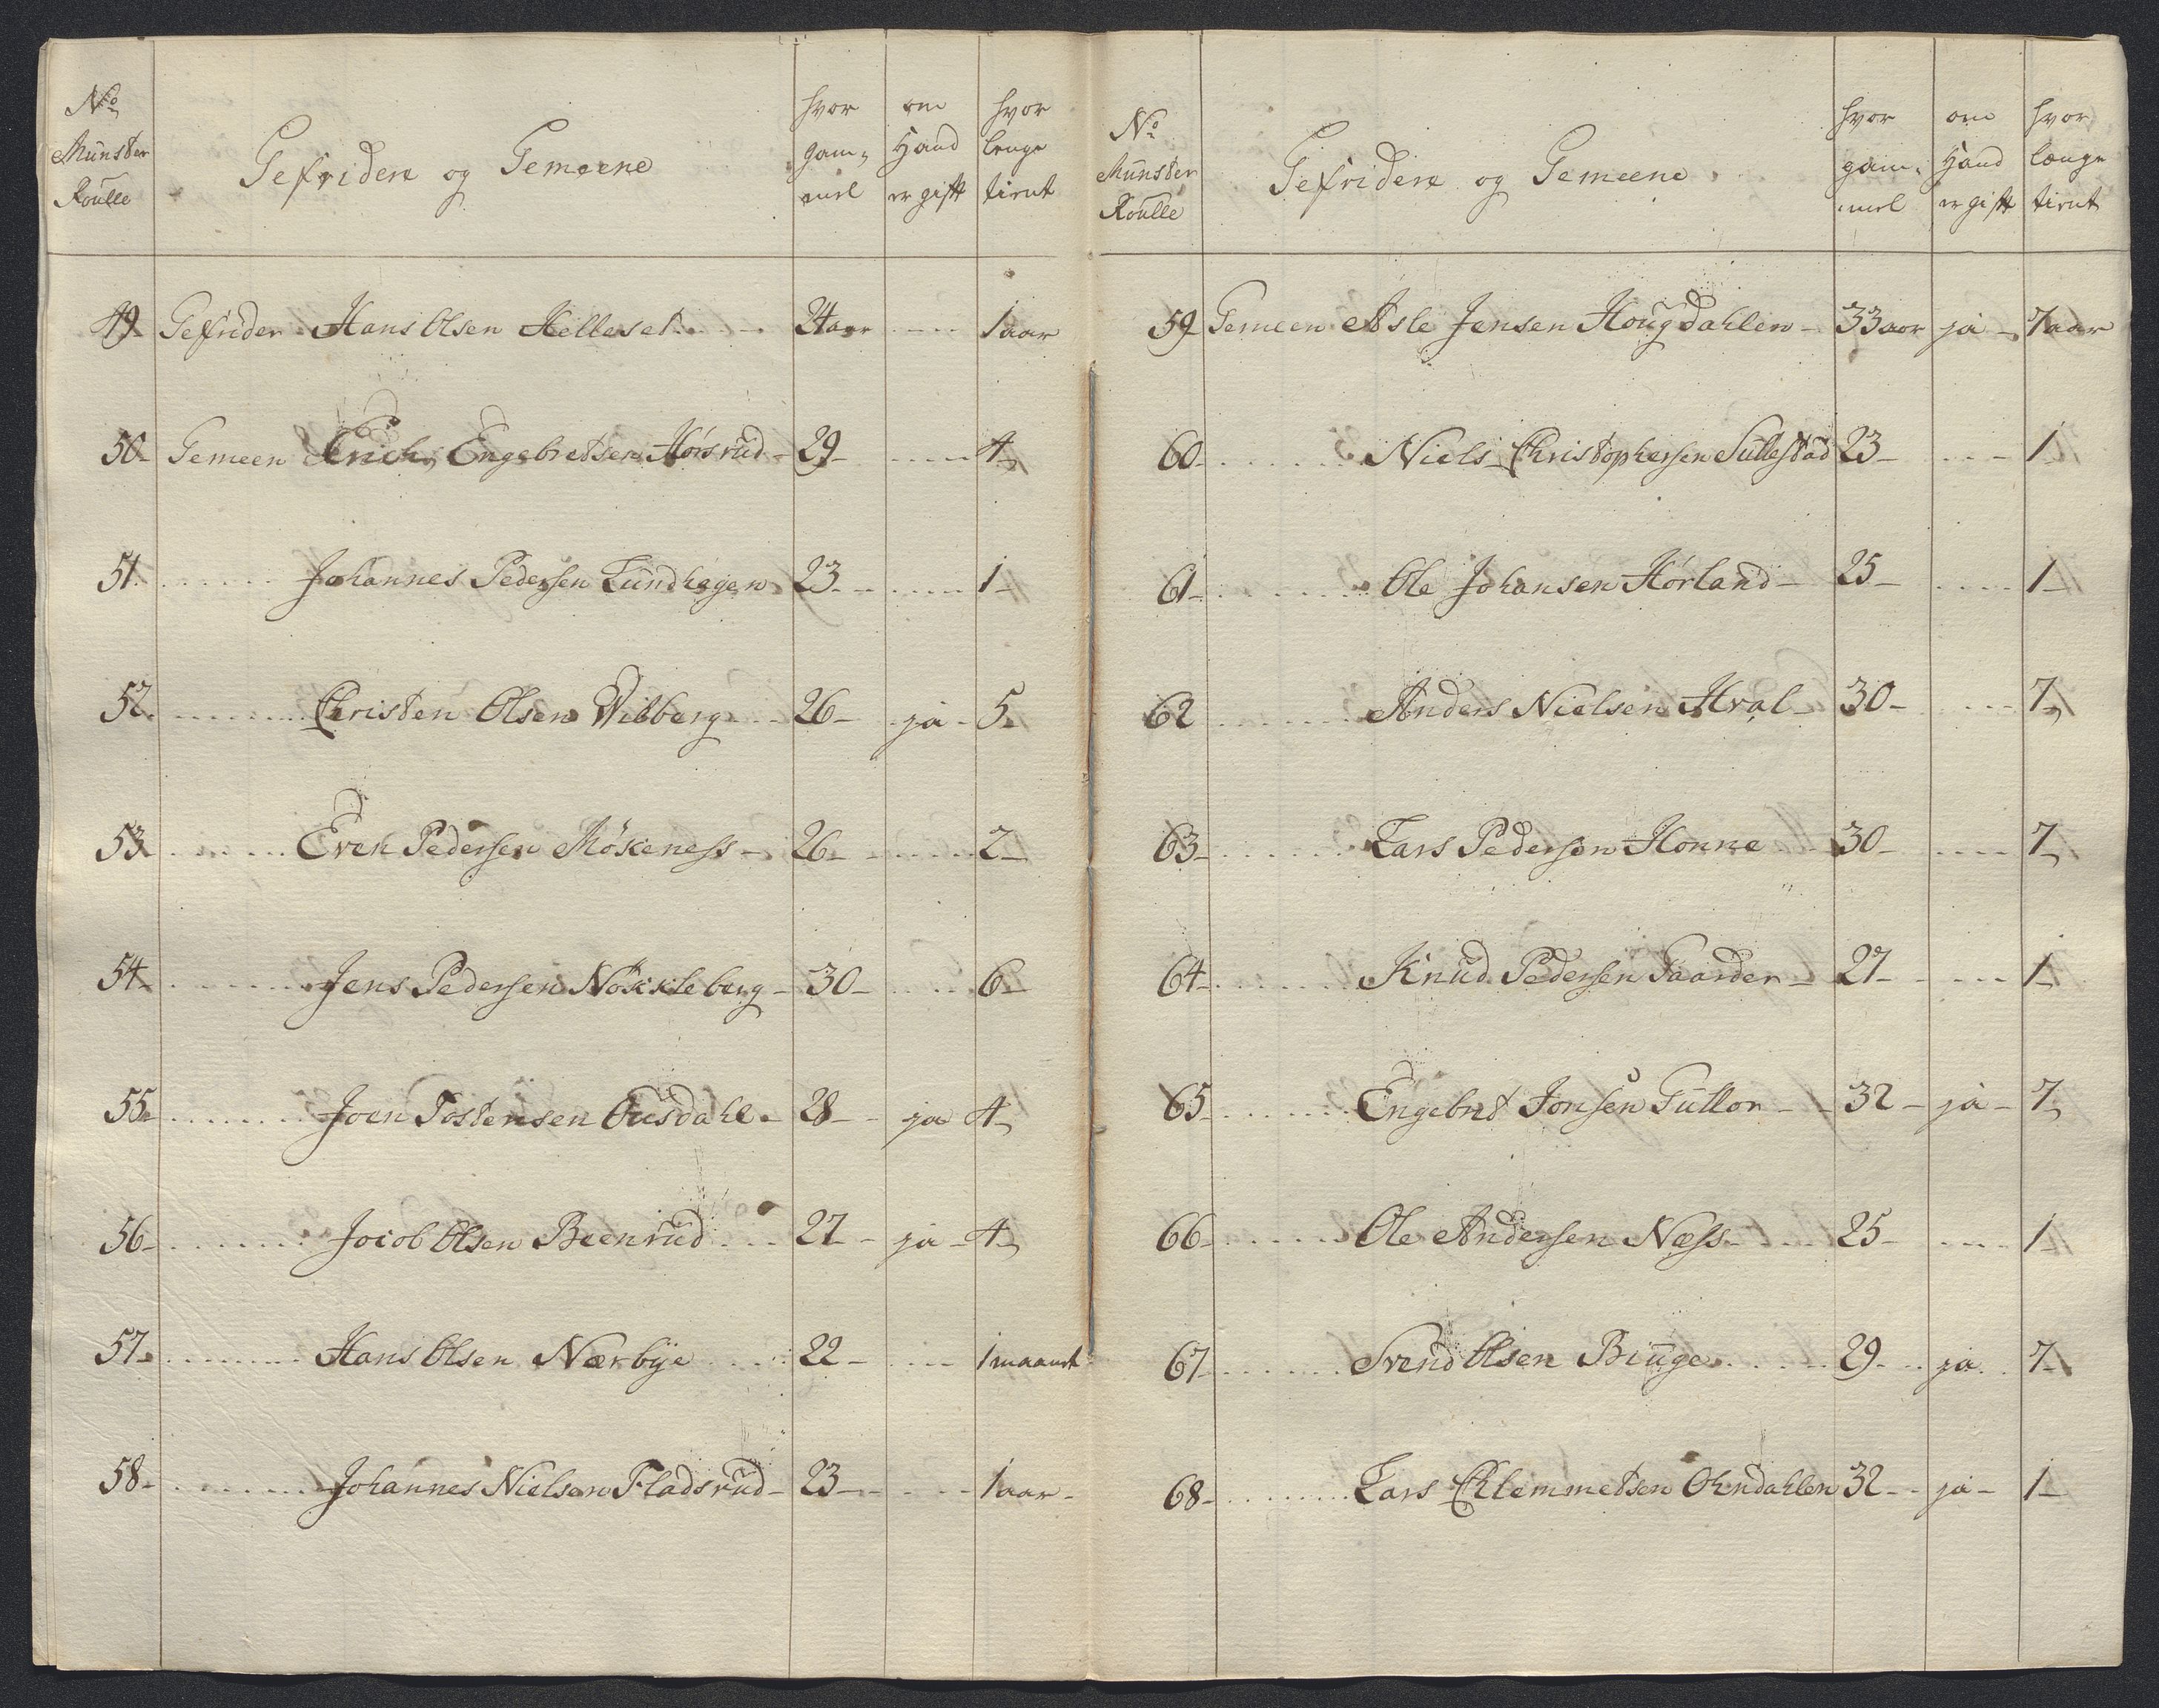 No Munster Roulle
Gefridere og Gemeene
hvor gam- mel
om Hand er gift
hvor lenge tient
49 Gefrider Hans Olsen Helleset 24 aar 1 aar
50 Gemeen Erich Engebretsen Hörsrud 29 4
51 Johannes Pedersen Lundhagen 23 1
52 Christen Olsen Wibberg 26 ja 5
53 Even Pedersen Mökeness 26 2
54 Jens Pedersen Nökkleberg 30 6
55 Joen Tostensen Ousdahl 28 ja 4
56 Jocob Olsen Beenrud 27 ja 4
57 Hans Olsen Nærbye 22 1 maanet
58 Johannes Nielsen Fladsrud 23 1 aar
No Munster Roulle
Gefridere og Gemeene
hvor gam- mel
om Hand er gift
hvor længe tient
59 Gemeen Asle Jensen Hougdahlen 33 aar ja 7 aar
60 Niels Christophersen Sullestad 23 1
61 Ole Johansen Hörland 25 1
62 Anders Nielsen Hval 30 7
63 Lars Pedersen Honne 30 7
64 Knud Pedersen Gaarder 27 1
65 Engebret Jonsen Guttor 32 ja 7
66 Ole Andersen Næss 25 1
67 Svend Olsen Biuge 29 ja 7
68 Lars Chlemmetsen Ohndahlen 32 ja 1